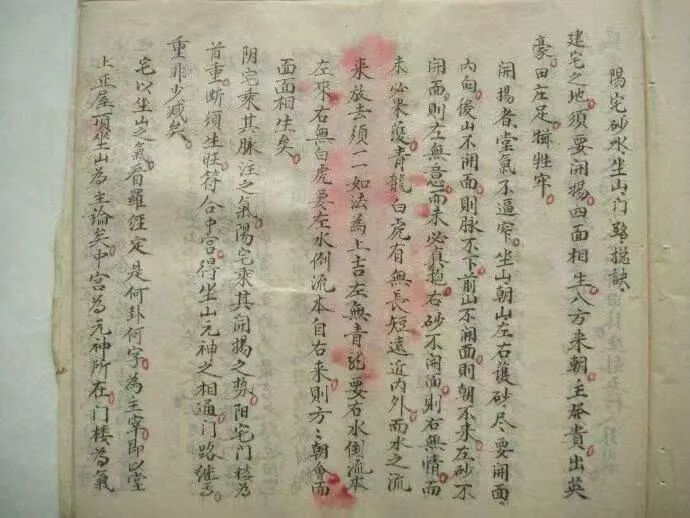 陽宅砂水坐山门路捴訣
建宅之地須要開揚四面相生八方来朝主發貴出英
豪田庄足牺牲牢
開揚者堂氣不逼窄坐山朝山左右護砂尽要開面
內向後山不開面則脉不下前山不開面則朝不来左砂不
開面則左無意而未必真抱右砂不開面則右無情而
未必果護青龍白虎有無長短遠近內外而水之流
来放去須一一如法為上吉左無青龍要右水倒流本
左來右無白虎要左水倒流本自右来則方方朝會而
面面相生矣
阴宅乘其脉注之氣陽宅乘其開揚之势阳宅门楼為
首重断須生旺符合中宫得坐山元神之相通门路継焉
重非少减矣
宅以坐山之氣看羅経定是何卦何字為主宰即以堂
上正屋頂坐山為主論矣中宫為元神所在门楼為氣